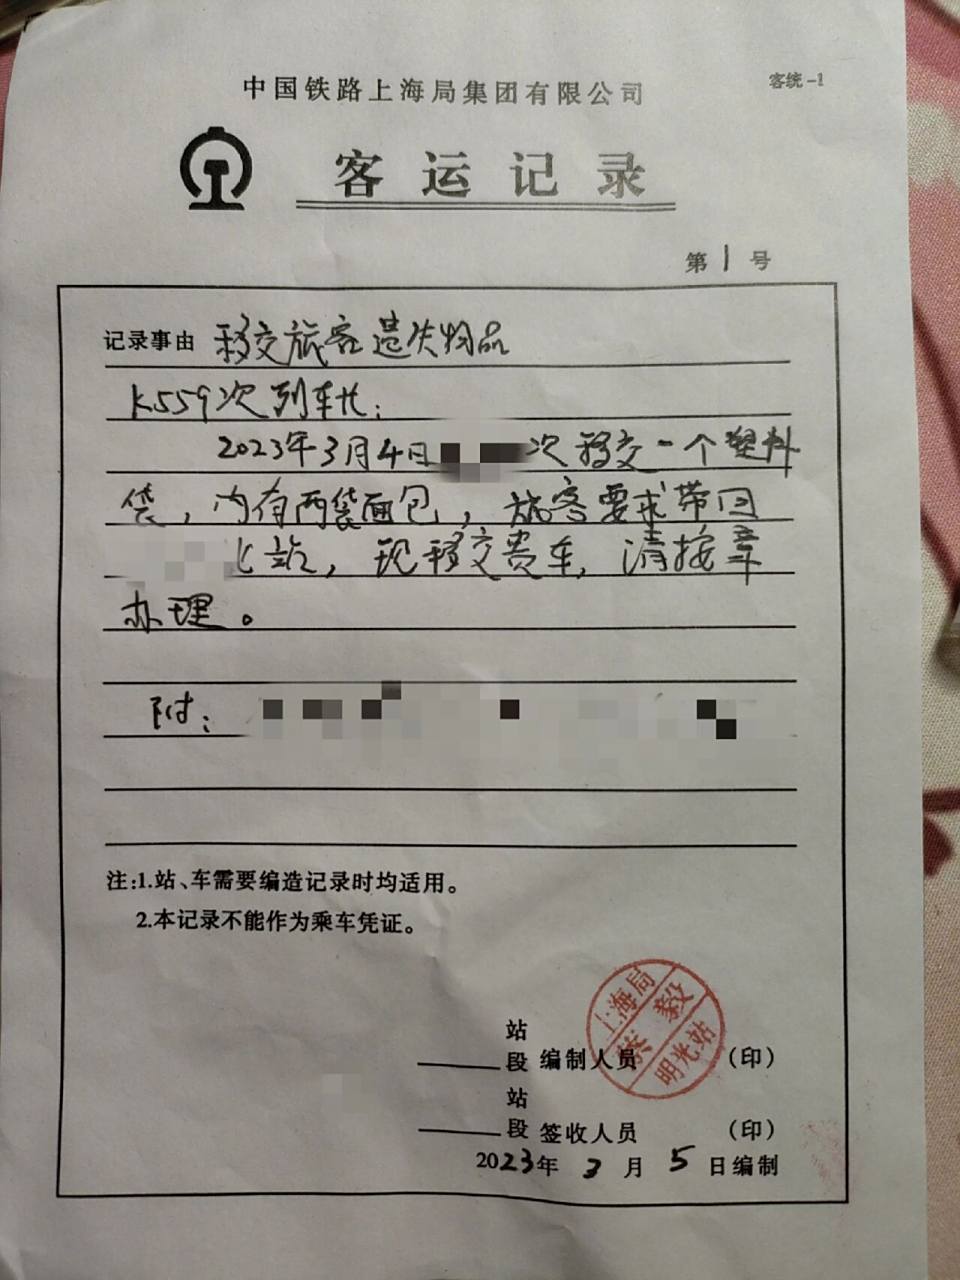 中国铁路上海局集团有限公司
客统-1
客运记录
第 1 号
记录事由 移交旅客遗失物品
K559次列车长：
2023年3月4日 次移交一个塑料
袋，内有两袋面包，旅客要求带回
北站，现移交贵车，请按章
办理。
附：
注:1.站、车需要编造记录时均适用。
2.本记录不能作为乘车凭证。
上海局
毅
明光站
站
段 编制人员 （印）
站
段 签收人员 （印）
2023年 3 月 5 日编制